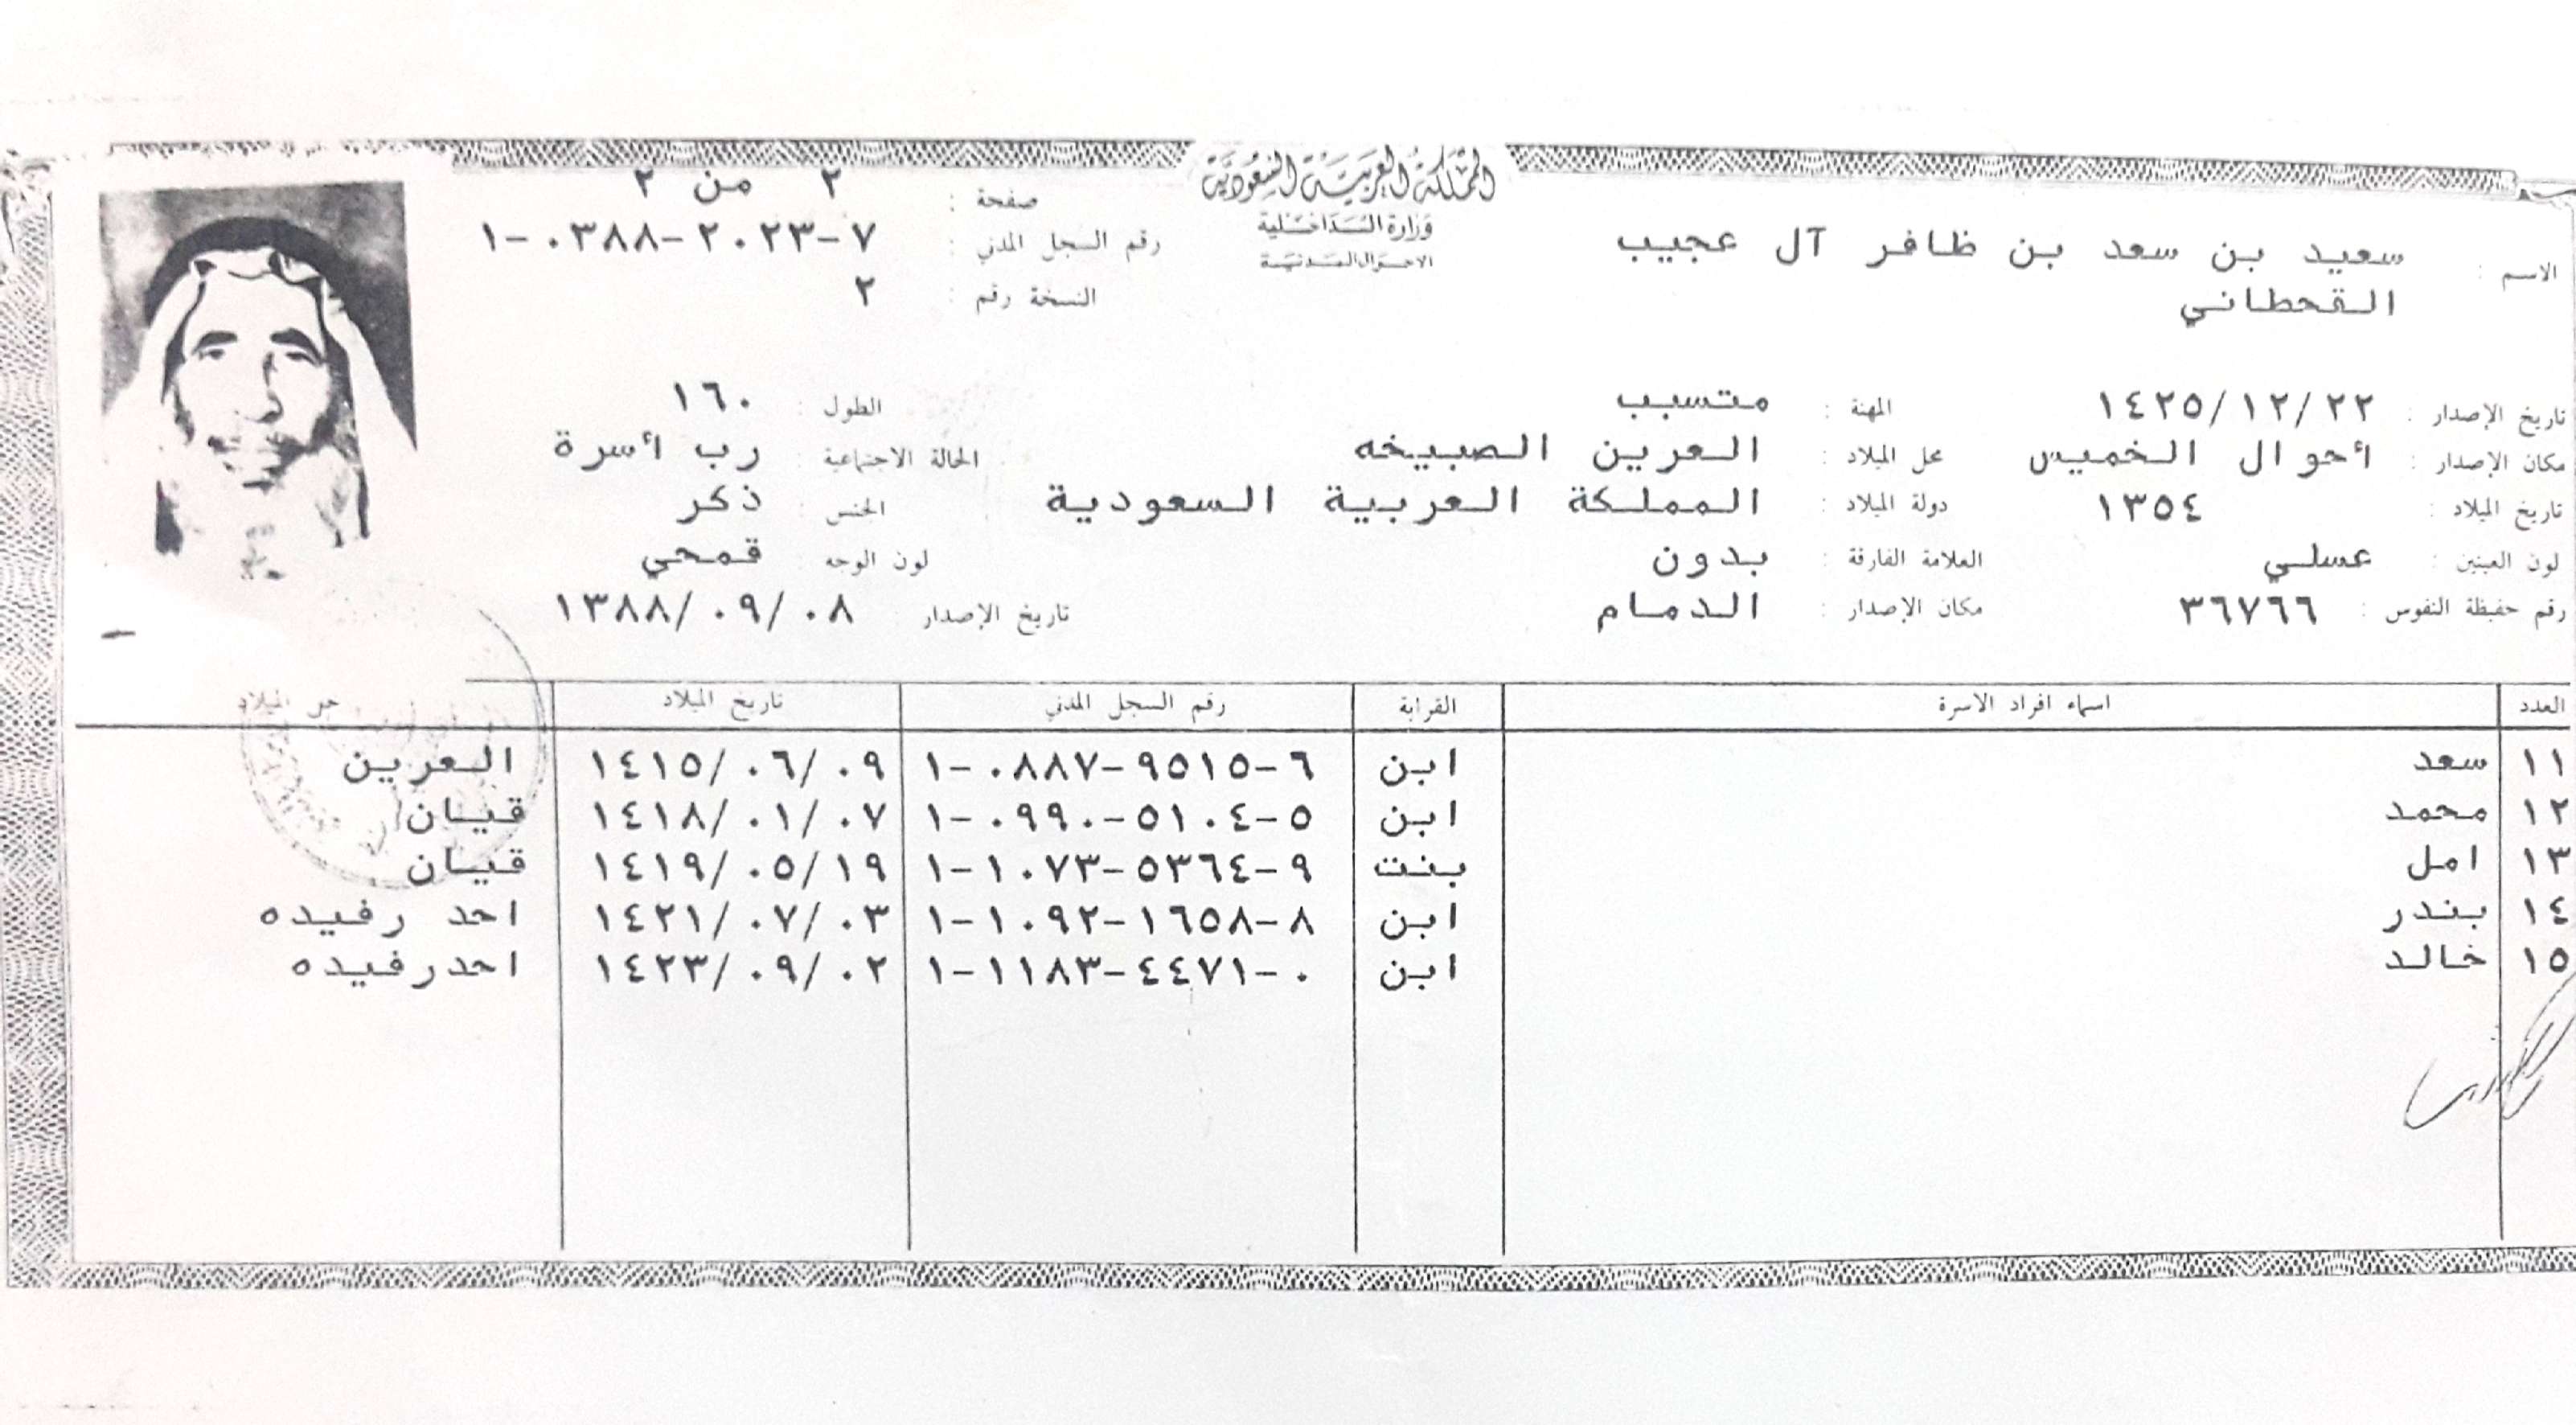 المملكة العربية السعودية
وزارة الداخلية
الاحوال المدنية
الاسم : سعيد بن سعد بن ظافر آل عجيب
القحطاني
صفحة : ٢ من ٢
رقم السجل المدني : ١-٠٣٨٨-٢٠٢٣-٧
النسخة رقم : ٢
تاريخ الإصدار : ١٤٢٥/١٢/٢٢ المهنة : متسبب الطول : ١٦٠
مكان الإصدار : أحوال الخميس محل الميلاد : العرين الصبيخه الحالة الاجتماعية : رب أسرة
تاريخ الميلاد : ١٣٥٤ دولة الميلاد : المملكة العربية السعودية الجنس : ذكر
لون العينين : عسلي العلامة الفارقة : بدون لون الوجه : قمحي
رقم حفيظة النفوس : ٣٦٧٦٦ مكان الإصدار : الدمام تاريخ الإصدار : ١٣٨٨/٠٩/٠٨
العدد اسماء افراد الاسرة القرابة رقم السجل المدني تاريخ الميلاد الميلاد
١١ سعد ابن ١-٠٨٨٧-٩٥١٥-٦ ١٤١٥/٠٦/٠٩ العرين
١٢ محمد ابن ١-٠٩٩٠-٥١٠٤-٥ ١٤١٨/٠١/٠٧ قيان
١٣ امل بنت ١-١٠٧٣-٥٣٦٤-٩ ١٤١٩/٠٥/١٩ قيان
١٤ بندر ابن ١-١٠٩٢-١٦٥٨-٨ ١٤٢١/٠٧/٠٣ احد رفيده
١٥ خالد ابن ١-١١٨٣-٤٤٧١-٠ ١٤٢٣/٠٩/٠٢ احدرفيده